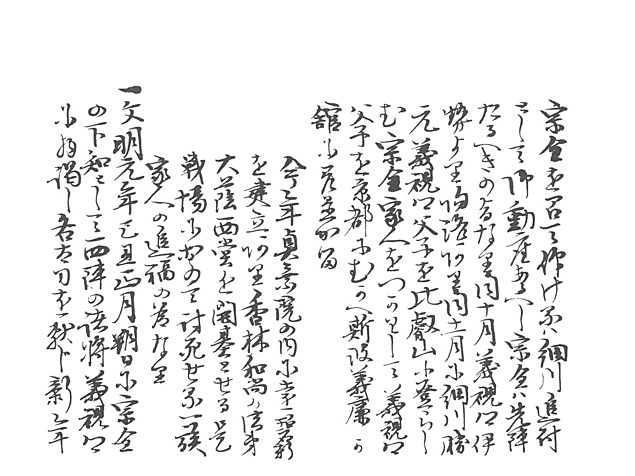 宗全を召て仰けるハ細川追討
として御動座あるへし宗全ハ先陣
たるへきのよしなり同十月義視公伊
勢より帰洛あり同十一月に細川勝
元義視公父子を比叡山に登らし
む宗全家人をつかわして義視公
父子を京都にむかへ斯波義廉の
舘に
今年貞景院の内に一
を建立あり香林和尚の法弟
大蔭西堂を開基とせる是
戦場において討死せる一族
家人の追福の為なり
一文明元年己丑正月朔日に宗全
の下知として西陣の諸将義視公
に拝謁し各太刀を献し新年